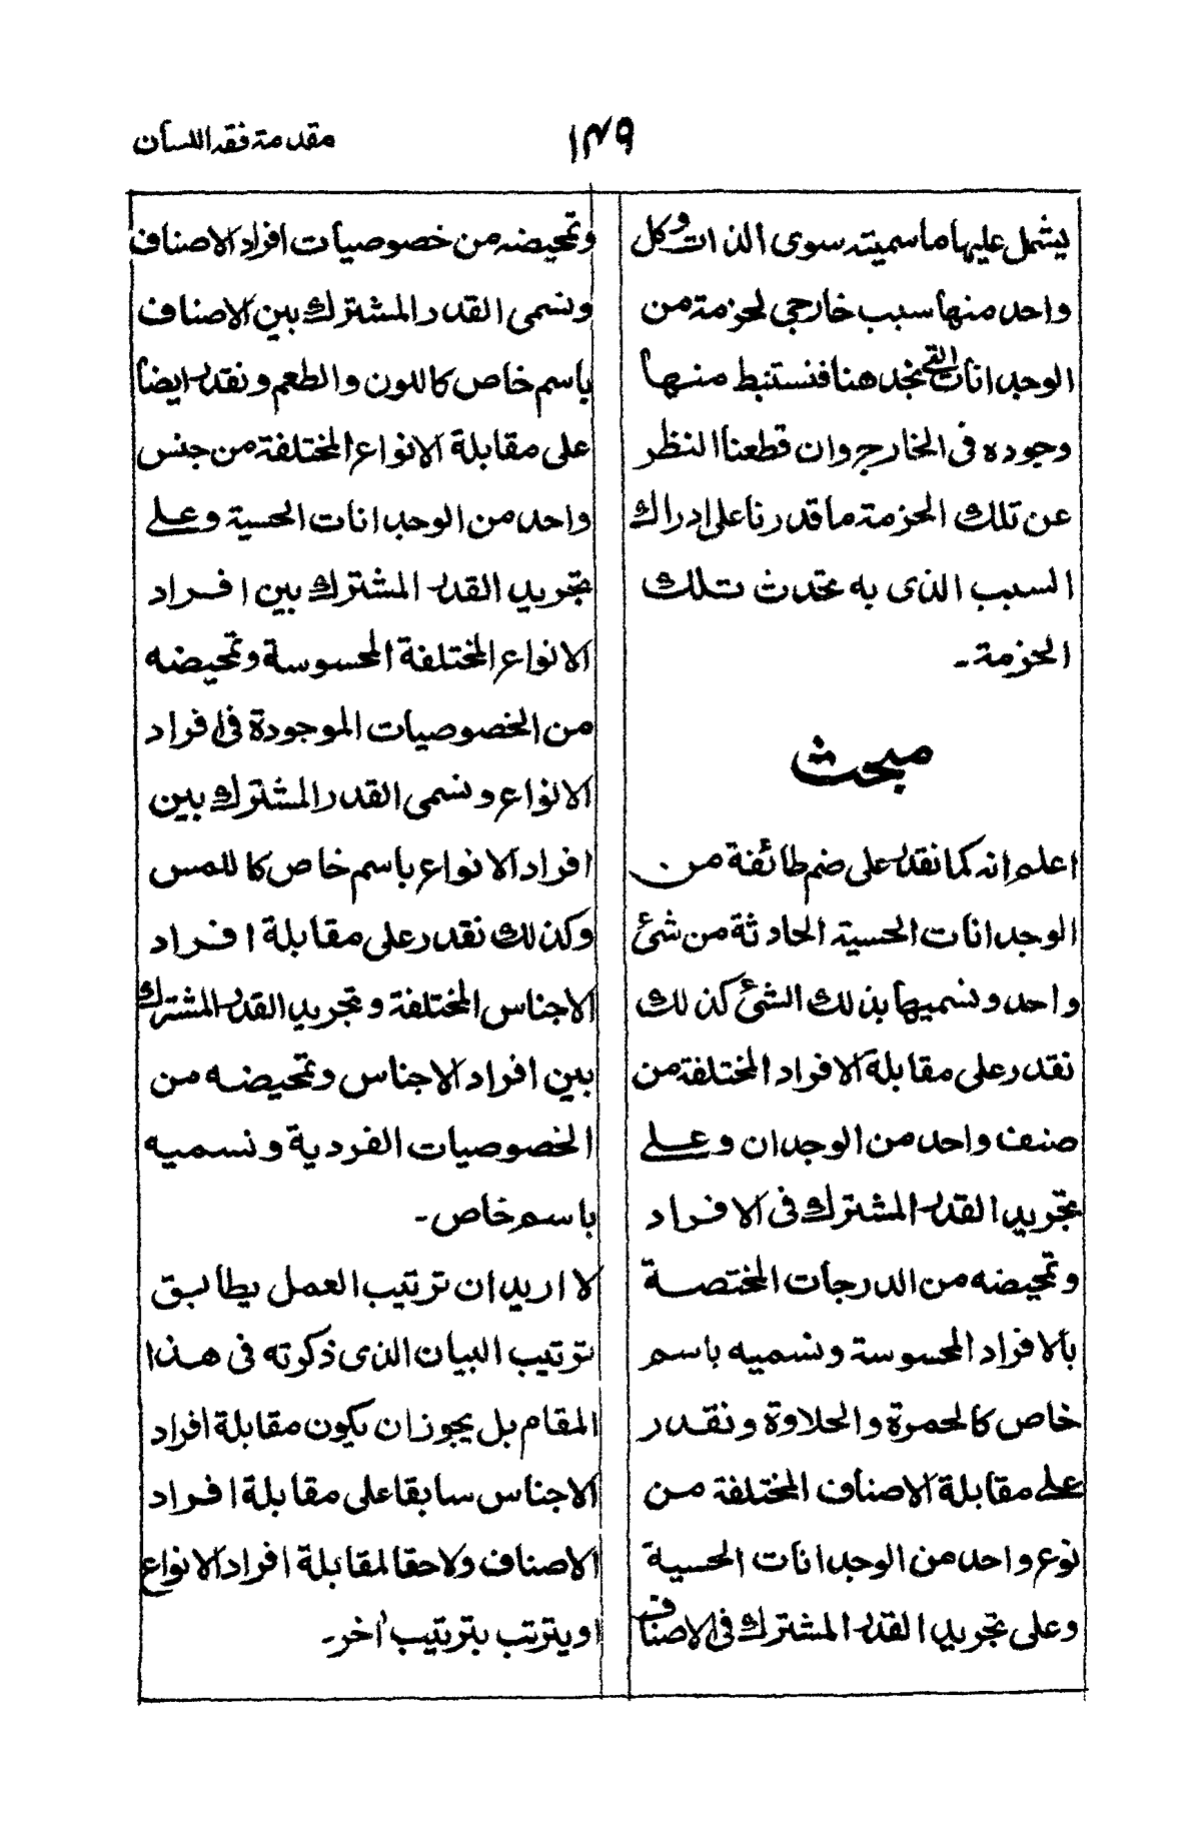 مقدمة فقه اللسان
١٤٩
يشمل عليها ما سميته سوى الذات وكل
واحد منها سبب خارجى لحزمة من
الوجدانات التى نجد هنا فنستنبط منها
وجوده فى الخارج وان قطعنا النظر
عن تلك الحزمة ما قدرنا على ادراك
السبب الذى به تحدث تلك
الحزمة ـ
مبحث
اعلم انه كما نقدر على ضم طائفة من
الوجدانات الحسية الحادثة من شئ
واحد ونسميها بذلك الشئ كذلك
نقدر على مقابلة الافراد المختلفة من
صنف واحد من الوجدان وعلى
تجريد القدر المشترك فى الافراد
وتمحيضه من الدرجات المختصة
بالافراد المحسوسة ونسميه باسم
خاص كالحمرة والحلاوة ونقدر
على مقابلة الاصناف المختلفة من
نوع واحد من الوجدانات الحسية
وعلى تجريد القدر المشترك فى الاصناف
وتمحيضه من خصوصيات افراد الاصناف
ونسمى القدر المشترك بين الاصناف
باسم خاص كاللون والطعم ونقدر ايضا
على مقابلة الانواع المختلفة من جنس
واحد من الوجدانات الحسية وعلى
تجريد القدر المشترك بين افراد
الانواع المختلفة المحسوسة وتمحيضه
من الخصوصيات الموجودة فى افراد
الانواع ونسمى القدر المشترك بين
افراد الانواع باسم خاص كاللمس
وكذلك نقدر على مقابلة افراد
الاجناس المختلفة وتجريد القدر المشترك
بين افراد الاجناس وتمحيضه من
الخصوصيات الفردية ونسميه
باسم خاص ـ
لا اريد ان ترتيب العمل يطابق
ترتيب البيان الذى ذكرته فى هذا
المقام بل يجوز ان يكون مقابلة افراد
الاجناس سابقا على مقابلة افراد
الاصناف ولاحقا لمقابلة افراد الانواع
او يترتب بترتيب اخر ـ